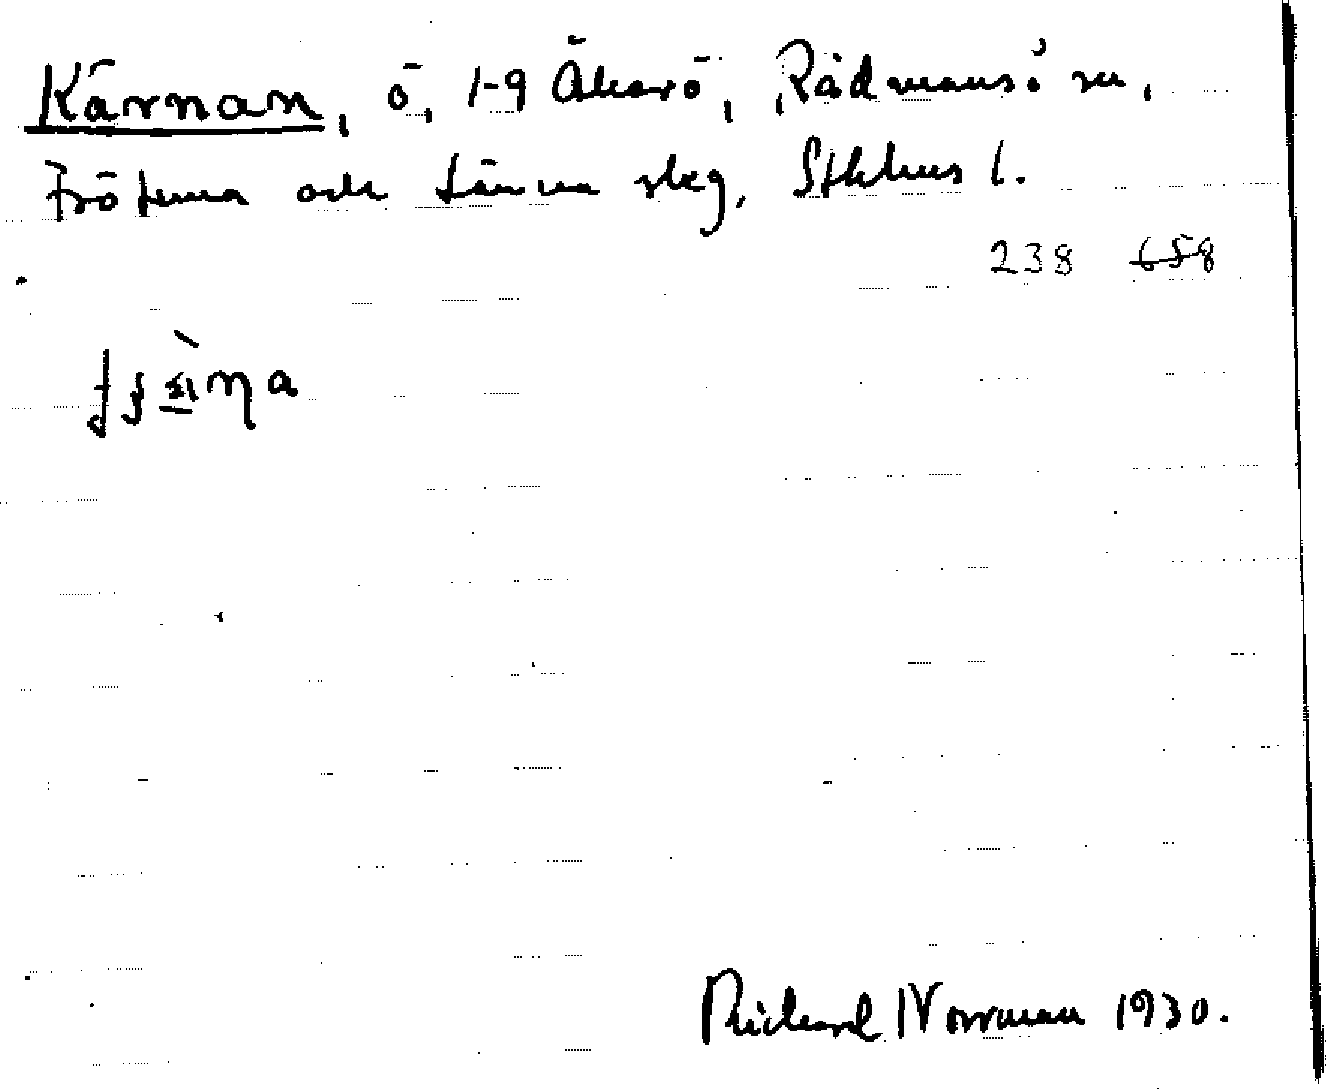 Kärnan, ö, 1-9 Åkerö, Rådmansö sn,
Frötuna och Länna skg, Sthlms l.
238 658
Rickard Norrman 1930.